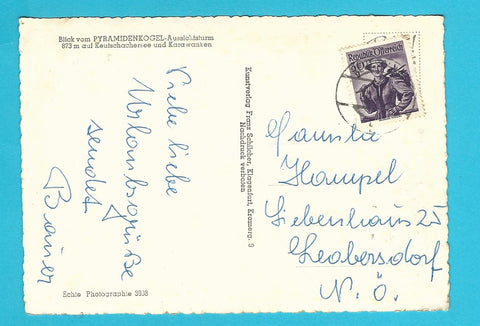 Blick vom PYRAMIDENKOGEL-Aussichtsturm
873 m auf Keutschachersee und Karawanken
Viele liebe
Urlaubsgrüße
sendet
Bauer
Echte Photographie 3938
Kunstverlag Franz Schilcher, Klagenfurt, Kramerg. 9
Nachdruck verboten
Republik Österreich
Familie
Hampel
Siebenhaus 25
Leobersdorf
N. Ö.